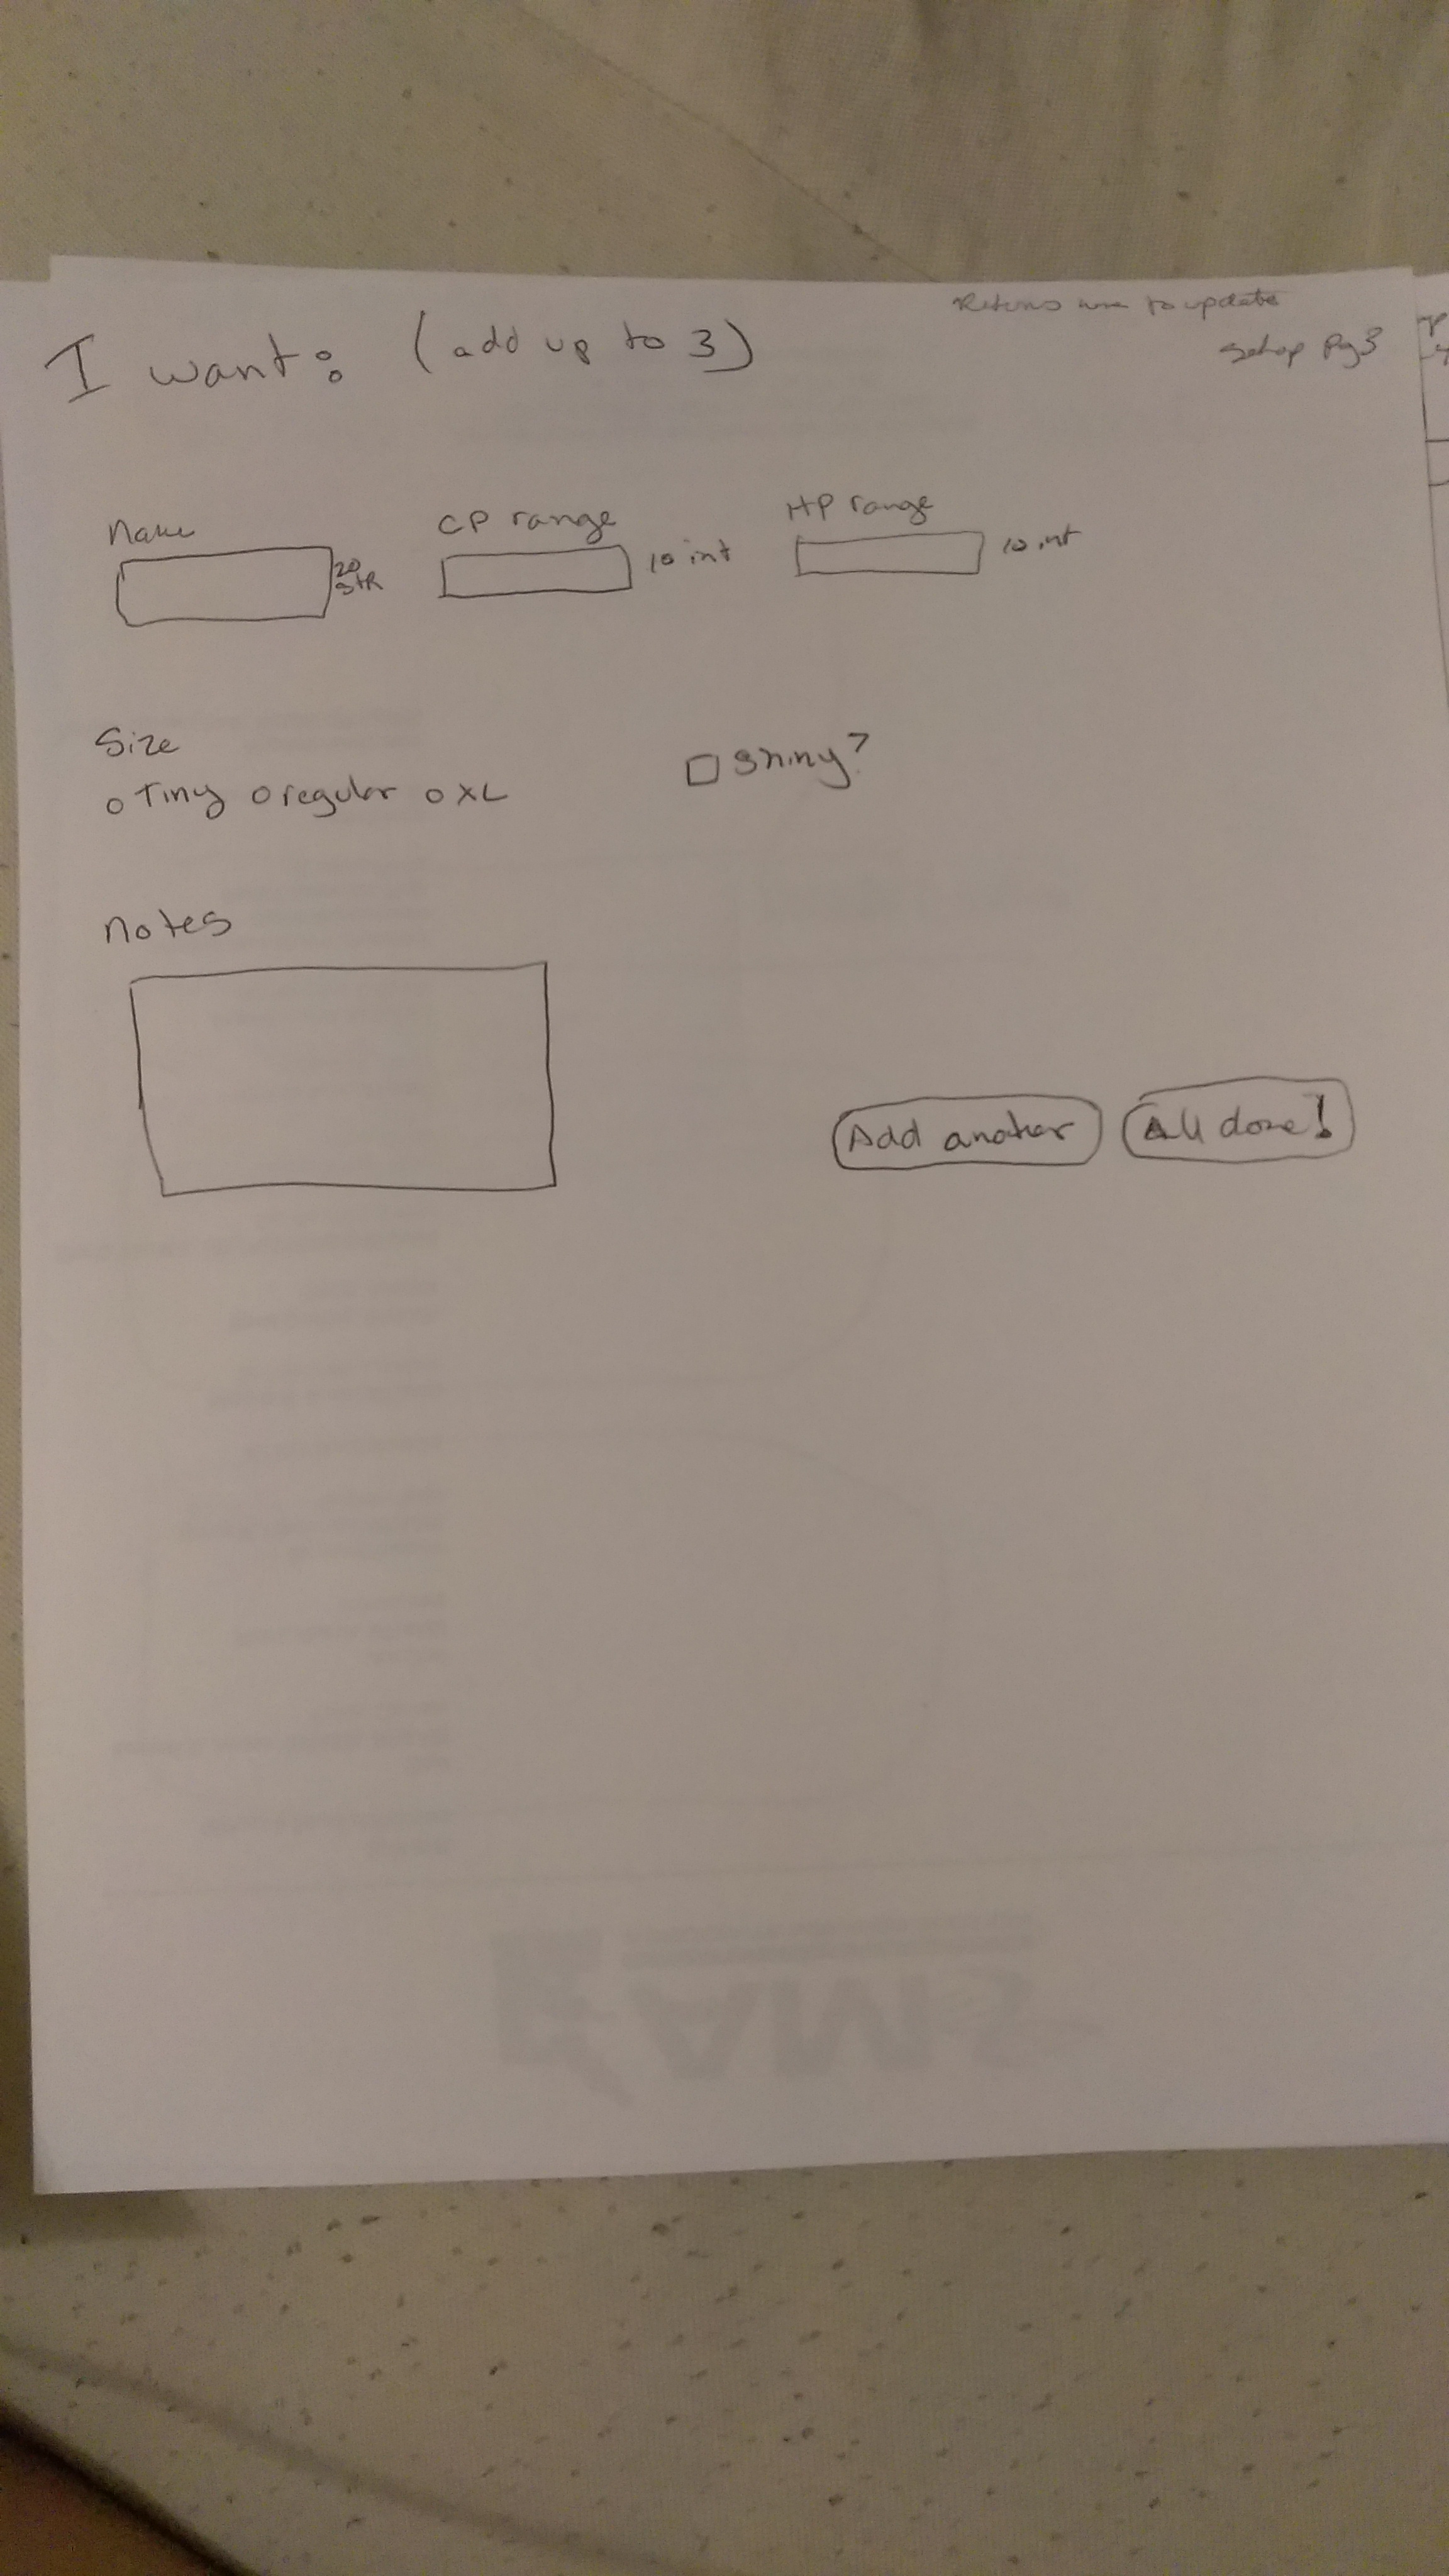 Returns here to update
Setup Pg3
I want: (add up to 3)
Name
CP range
HP range
20
STR
10 int
10 int
Size
Tiny regular XL
Shiny?
Notes
Add another
All done!